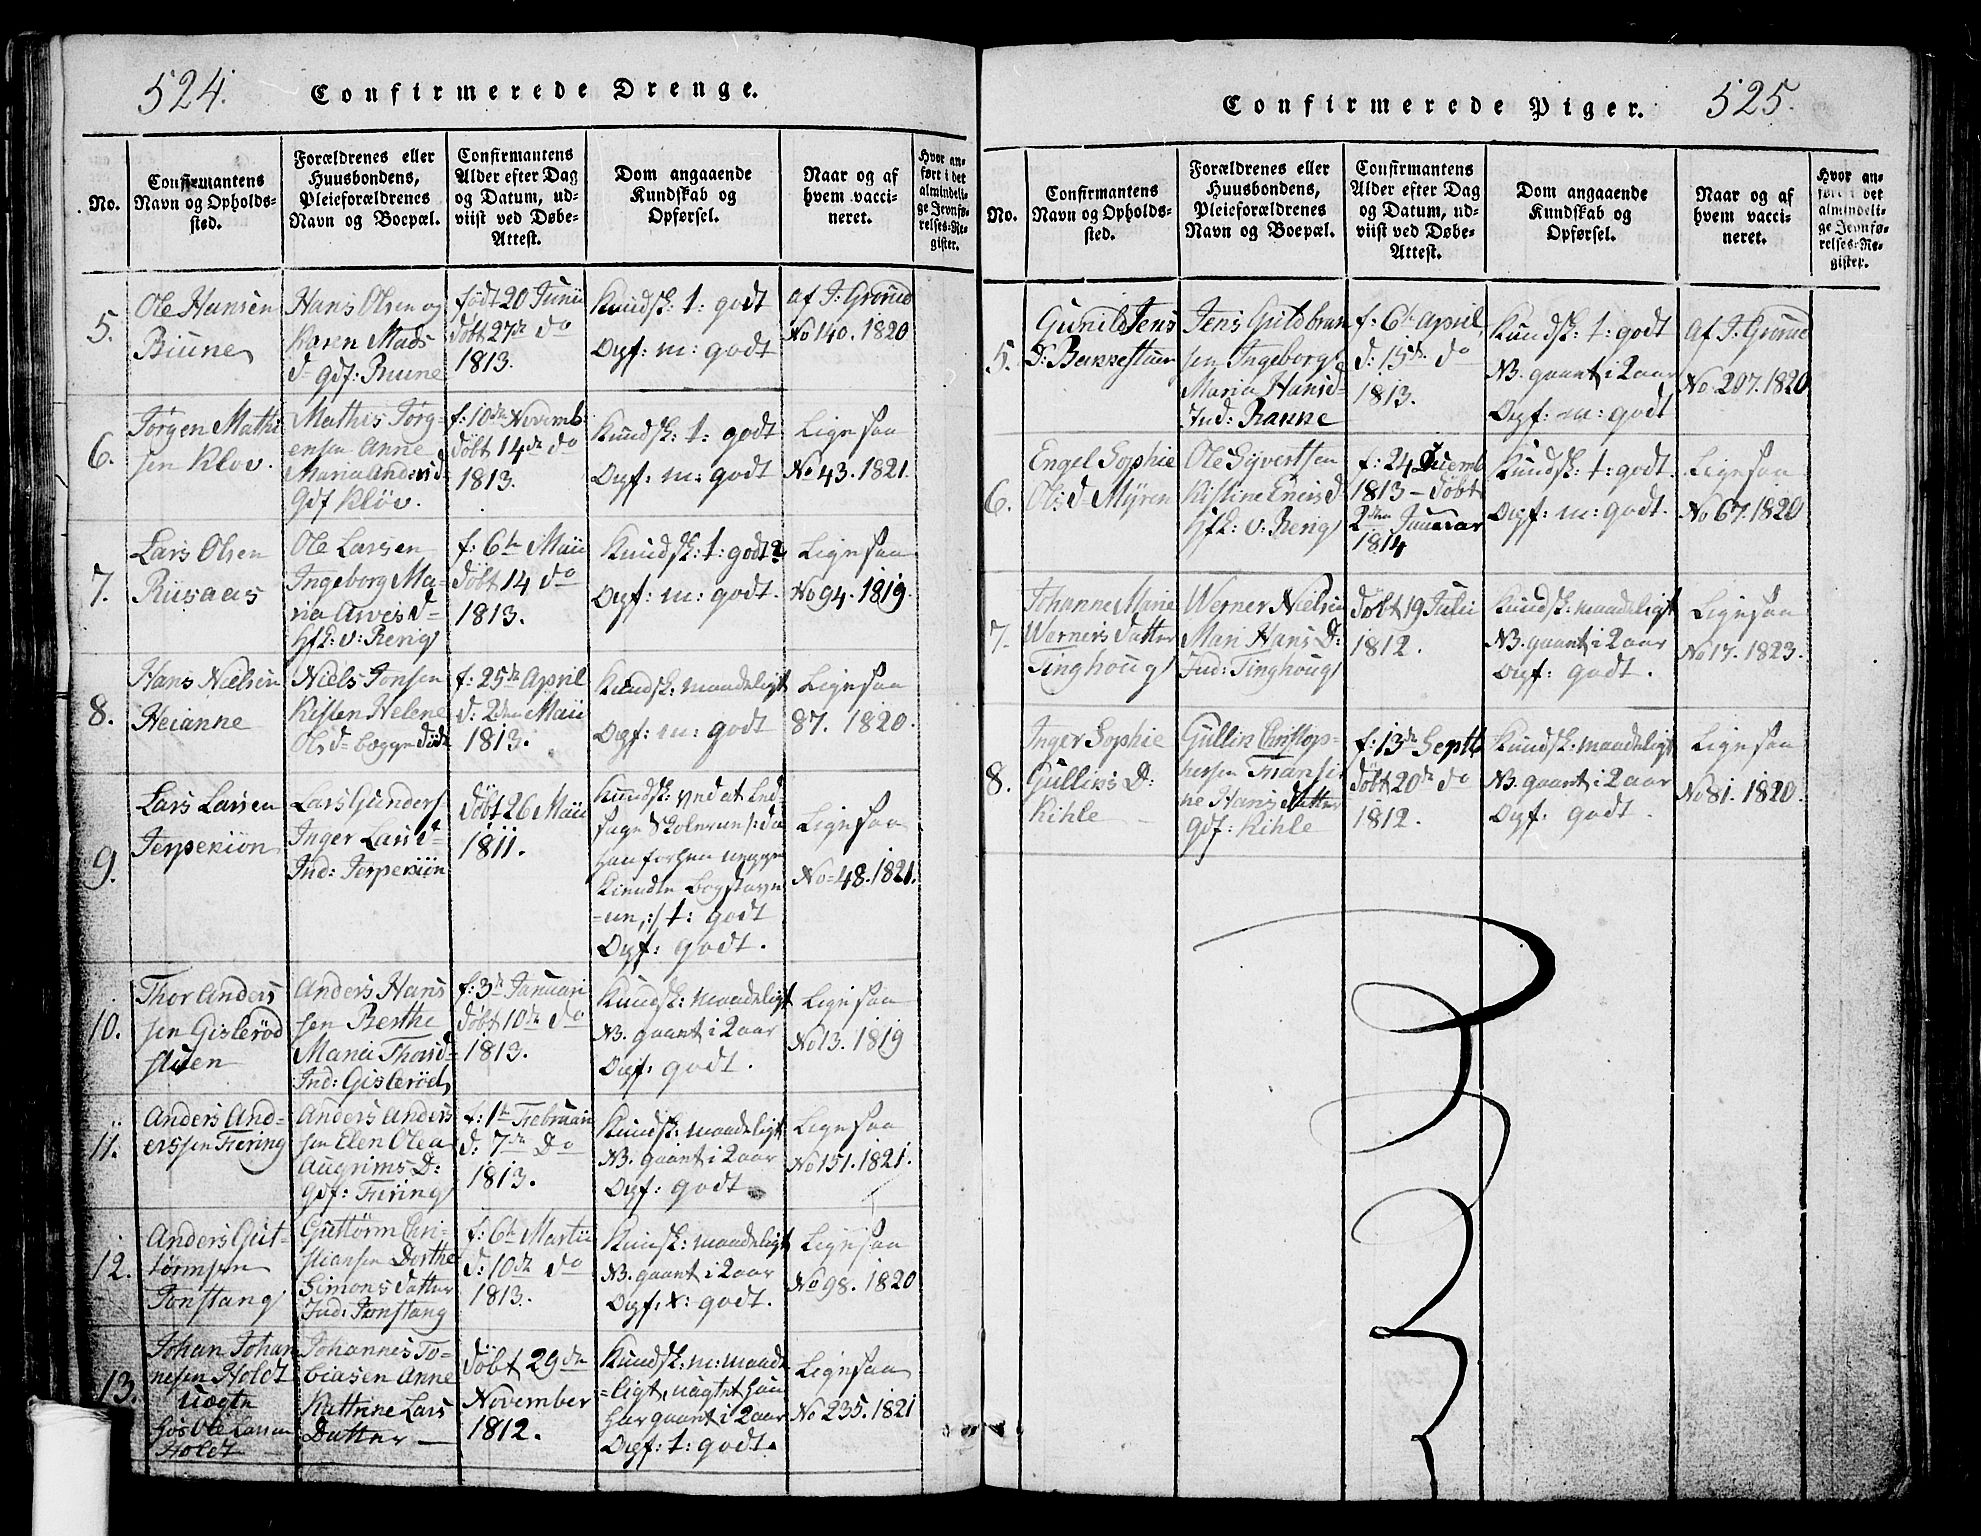 524.
Confirmerede Drenge.
No.
Confirmantens
Navn og Opholds-
sted.
Forældrenes eller
Huusbondens,
Pleieforældrenes
Navn og Boepæl.
Confirmantens
Alder efter Dag
og Datum, ud-
viist ved Døbe-
Attest.
Dom angaaende
Kundskab og
Opførsel.
Naar og af
hvem vacci-
neret.
Hvor an-
ført i det
almindeli-
ge Jevnfø-
relses-Re-
gister.
5.
Ole Hansen
Biune
Hans Olsen og
Karen Mads
d gdf: Biune
født 20 Junii
døbt 27de do
1813.
Kundsk: t: godt
Opf: m: godt
af J: Grorud
No 140. 1820
6.
Jørgen Mathi
sen Kløv.
Mathis Jørg-
ensen Anne
Maria Andersd
Gdf Kløv.
f: 10de Novemb
døbt 14de do
1813.
Kundsk: t: godt
Opf: m: godt
Ligesaa
No 43. 1821.
7.
Lars Olsen
Riisaas
Ole Larsen
Ingeborg Ma-
ria Arvesd
Hfd: v: Berig
f: 6te Maii
døbt 14 do
1813.
Kundsk: t: godt
Opf: m: godt.
Ligesaa
No 94. 1819.
8.
Hans Nielsen
Heianne
Niels Jonsen
Kisten Helene
Olsd begge døde
f: 25de April
d: 2den Maii
1813.
Kundsk: maadeligt
Opf: m: godt
Ligesaa
87. 1820.
9.
Lars Larsen
Jerperiøn
Lars Gunders
Inger Larsd
Ind: Jerperiøn
døbt 26 Maii
1811.
Kundsk: ved at Led-
sage Skoleren /: da
han forhen neppe
kiendte bogstavn
=en, :/ t: godt
Opf: godt.
Ligesaa
No 48. 1821.
10.
Thor Anders
sen Gislerød
stuen
Anders Hans
sen Berthe
Maria Thorsd
Ind: Gislerød
f: 3de Januari
døbt 10de do
1813.
Kundsk: maadeligt
NB. gaaet i 2 aar
Opf: godt.
Ligesaa
No 13. 1819
11.
Anders And-
erssen Fiering
Anders Anders
sen Elen Olea
Augrims D:
gdf: Fiering
f: 1te Februari
d: 7de Do
1813.
Kundsk: maadeligt
NB. gaaet i 2 aar
Opf: godt
Ligesaa
No 151. 1821.
12.
Anders Gut-
tormsen
Tonstang
Guttorm Chri-
stiansen Dorthe
Simons datter
Ind: Tonstang
f: 6te Martii
d: 10de do
1813.
Kundsk: maadeligt
NB. gaaet i 2 aar
Opf: t: godt.
Ligesaa
No 98. 1820
13.
Johan Johan
nesen Holdt
uægte
hos Ole Larsen
Holdt
Johannes To-
biasen Anne
Kattrine Lars
Datter
døbt 29de
November
1812.
Kundsk: m: maade
=ligt, uagtet han
har gaaet i 2 aar
Opf: t: godt.
Ligesaa
No 235. 1821
Confirmerede Piger.
525.
No.
Confirmantens
Navn og Opholds-
sted.
Forældrenes eller
Huusbondens,
Pleieforældrenes
Navn og Boepæl.
Confirmantens
Alder efter Dag
og Datum, ud-
viist ved Døbe-
Attest.
Dom angaaende
Kundskab og
Opførsel.
Naar og af
hvem vacci-
neret.
Hvor an-
ført i det
almindeli-
ge Jevnfø-
relses-Re-
gister.
5.
Gunild Jens
D:
Jens Guldbran
sen Ingeborg
Maria Hansd
Ind: Ranne
f: 6te April
d: 15de do
1813.
Kundsk: t: godt
NB. gaaet i 2 aar
Opf: m: godt
af J: Grorud
No. 207. 1820
6.
Engel Sophie
Olsd Myren
Ole Syvertsen
Kistine Eneisd
Hfd: v: Berig
f: 24 Decemb
1813 - døbt
2den Januar
1814
Kundsk: t: godt.
Opf: m: godt.
Ligesaa
No 67. 1820
7.
Johanne Marie
Werners datter
Tinghoug
Werner Nielsen
Mari Hans D:
Ind: Tinghoug
døbt 19 Julii
1812.
Kundsk: maadeligt
NB. gaaet i 2 aar
Opf: godt.
Ligesaa
No 17. 1823.
8.
Inger Sophie
Gullins D:
Kihle
Gullin Christop-
hersen Fransi-
ne Hans datter
gdf: Kihle
f: 13de Septb
døbt 20de do
1812.
Kundsk: maadeligt
NB. gaaet i 2 aar
Opf: godt.
Ligesaa
No 81. 1820.